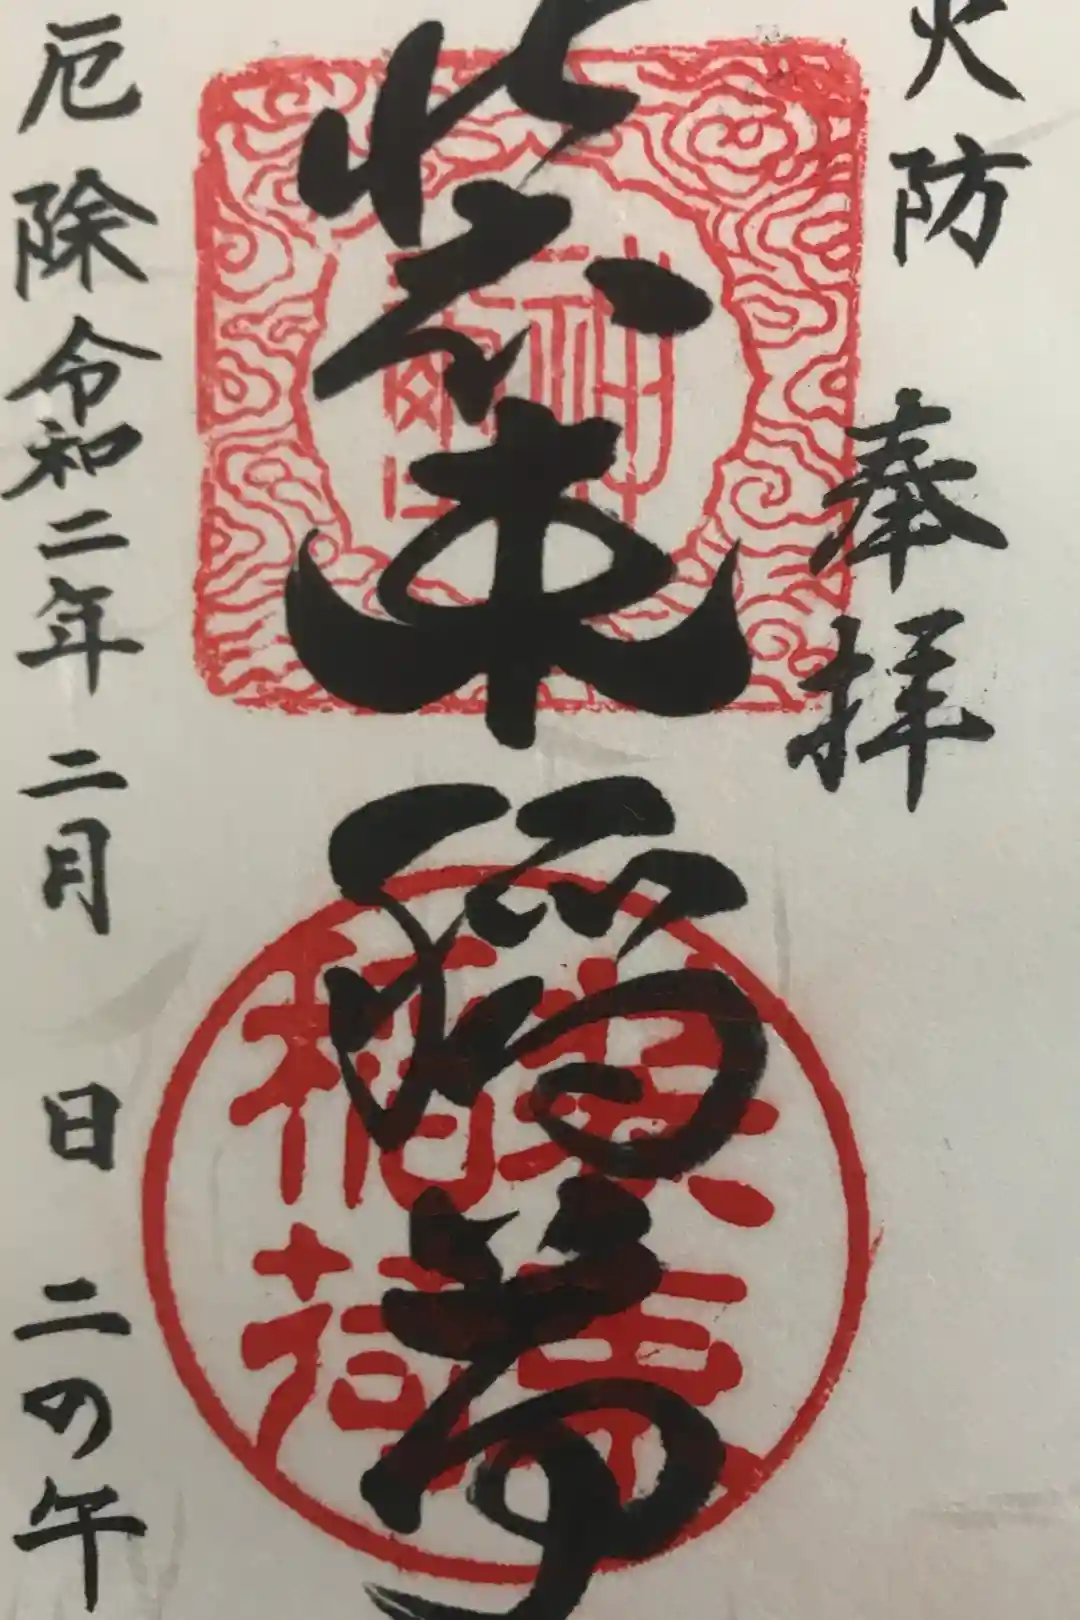 火防 奉拝
装束稲荷
装束
稲荷
厄除 令和二年 二月 日 二の午